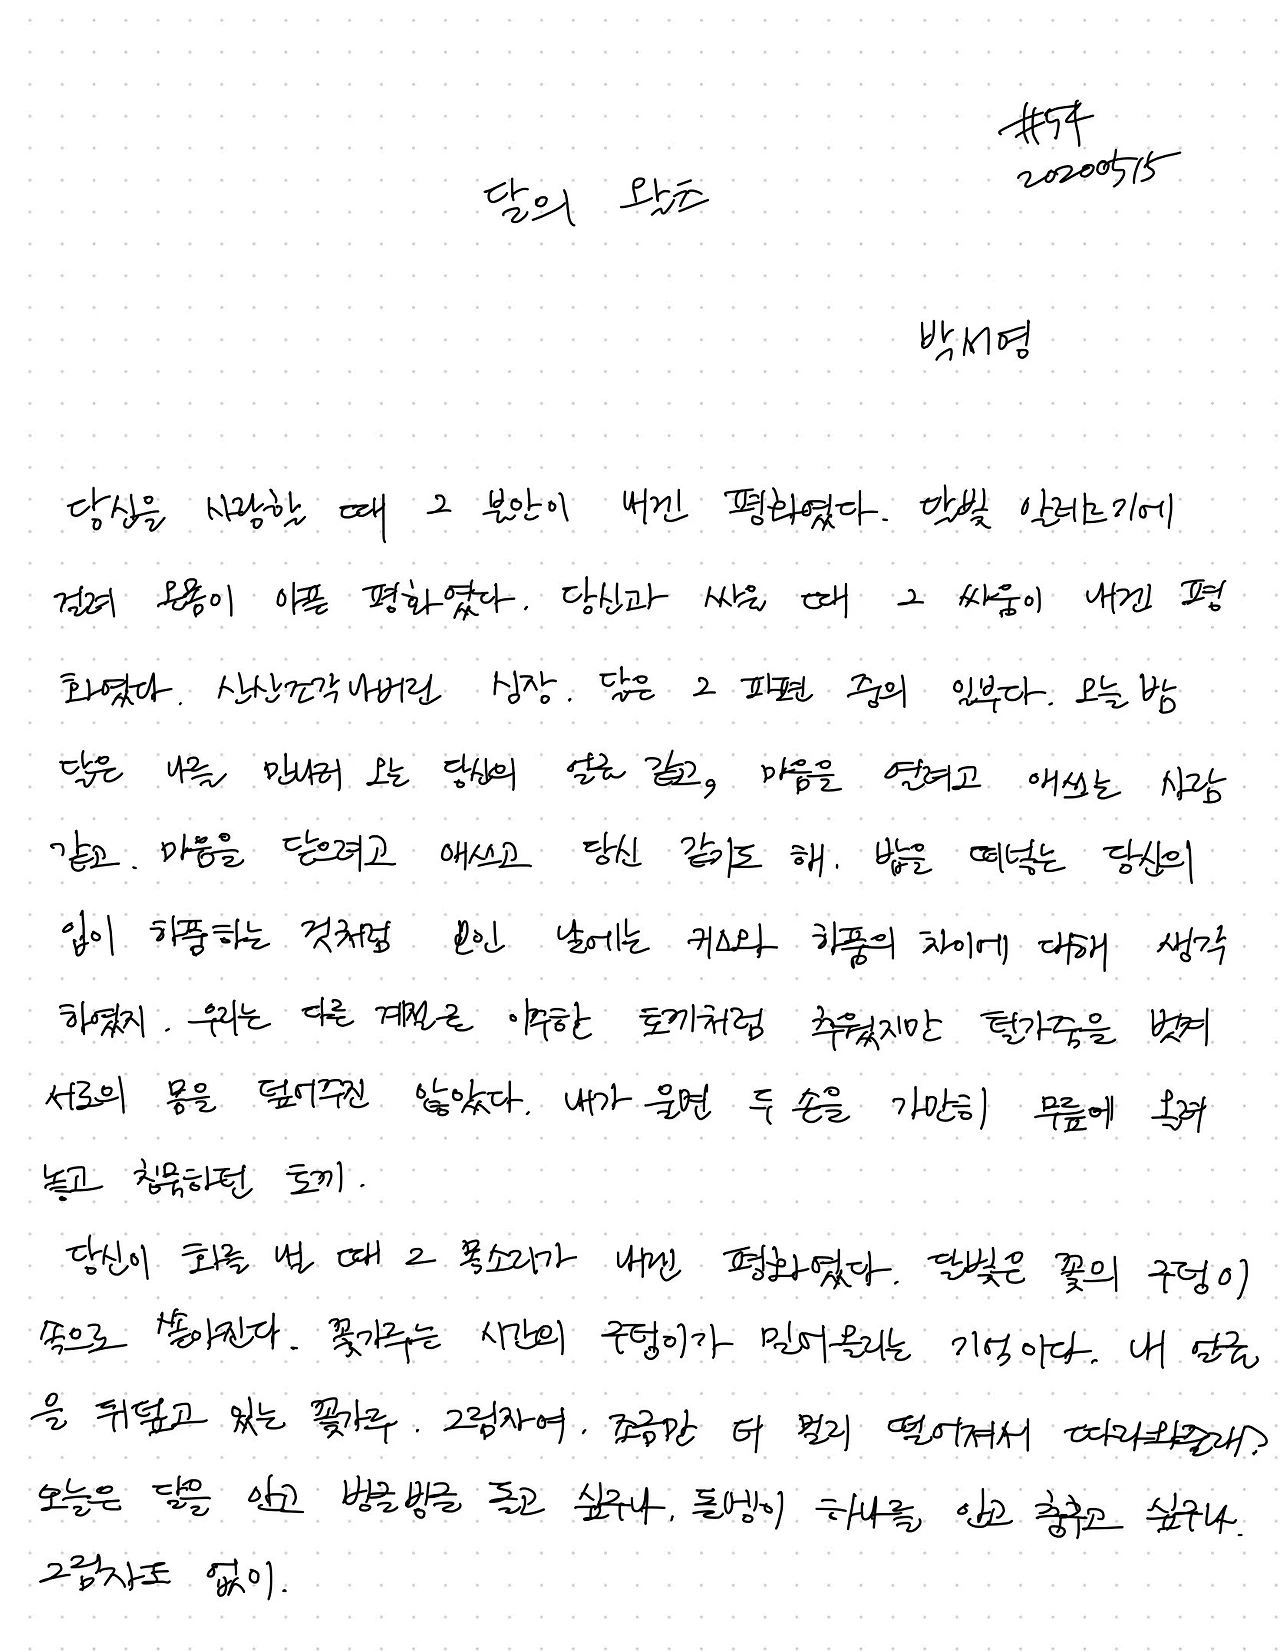 #54
20200515
달의 왈츠
박서영
당신을 사랑할 때 그 불안이 내겐 평화였다. 달빛 알레르기에
걸려 온몸이 아픈 평화였다. 당신과 싸울 때 그 싸움이 내겐 평
화였다. 산산조각나버린 심장. 달은 그 파편 중의 일부다. 오늘밤
달은 나를 만나러 오는 당신의 얼굴 같고, 마음을 열려고 애쓰는 사람
같고. 마음을 닫으려고 애쓰고 당신 같기도 해. 밥을 떠넣는 당신의
입이 하품하는 것처럼 보인 날에는 키스와 하품의 차이에 대해 생각
하였지. 우리는 다른 계절로 이주한 토끼처럼 추웠지만 털가죽을 벗겨
서로의 몸을 덮어주진 않았다. 내가 울면 두 손을 가만히 무릎에 올려
놓고 침묵하던 토끼.
당신이 화를 낼 때 그 목소리가 내겐 평화였다. 달빛은 꽃의 구덩이
속으로 쏟아진다. 꽃가루는 시간의 구덩이가 밀어올리는 기억이다. 내 얼굴
을 뒤덮고 있는 꽃가루. 그림자여. 조금만 더 멀리 떨어져서 따라와줄래?
오늘은 달을 안고 빙글빙글 돌고 싶구나. 돌멩이 하나를 안고 춤추고 싶구나.
그림자도 없이.